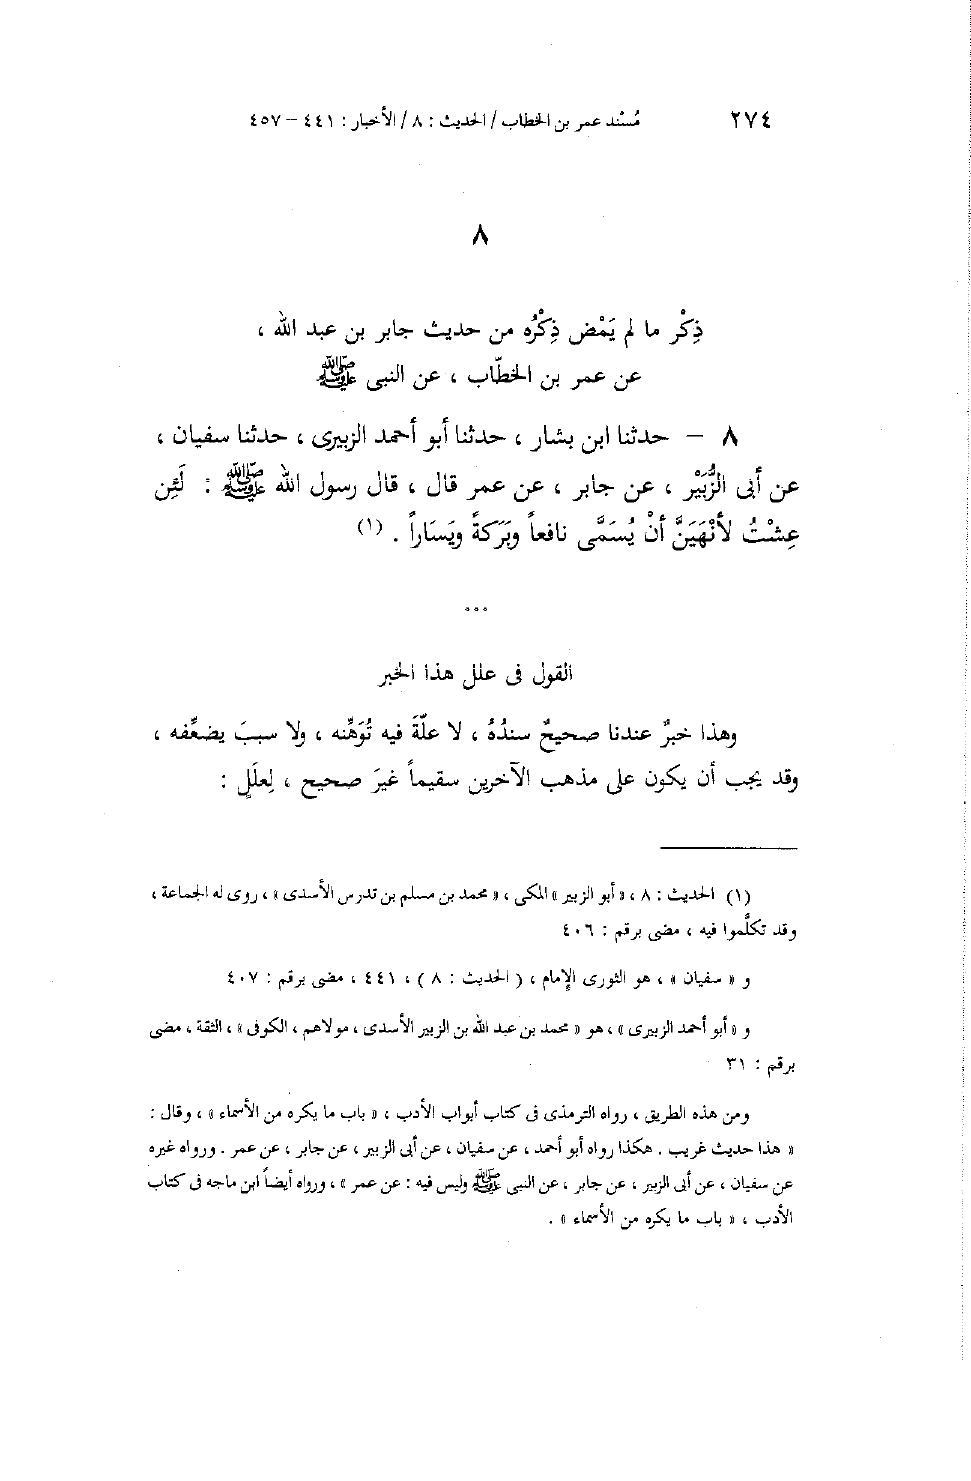 ٢٧٤ مُسْند عمر بن الخطاب / الحديث : ٨ / الأخبار : ٤٤١ – ٤٥٧
٨
ذِكْر ما لم يَمْض ذِكْرُه من حديث جابر بن عبد الله ،
عن عمر بن الخطّاب ، عن النبى ﷺ
٨ – حدثنا ابن بشار ، حدثنا أبو أحمد الزبيرى ، حدثنا سفيان ،
عن أبى الزُّبَيْر ، عن جابر ، عن عمر قال ، قال رسول الله ﷺ : لَئِن
عِشْتُ لأَنْهَيَنَّ أنْ يُسَمَّى نافعاً وبَرَكةً ويَسَاراً . (١)
° ° °
القول فى علل هذا الخبر
وهذا خبرٌ عندنا صحيحٌ سندُهُ ، لا علّةَ فيه تُوَهِّنه ، ولا سببَ يضعِّفه ،
وقد يجب أن يكون على مذهب الآخرين سقيماً غيرَ صحيح ، لِعلَلٍ :
(١) الحديث : ٨ ، « أبو الزبير » المكى ، « محمد بن مسلم بن تدرس الأسدى » ، روى له الجماعة ،
وقد تكلَّموا فيه ، مضى برقم : ٤٠٦
و « سفيان » ، هو الثورى الإمام ، ( الحديث : ٨ ) ، ٤٤١ ، مضى برقم : ٤٠٧
و « أبو أحمد الزبيرى » ، هو « محمد بن عبد الله بن الزبير الأسدى ، مولاهم ، الكوفى » ، الثقة ، مضى
برقم : ٣١
ومن هذه الطريق ، رواه الترمذى فى كتاب أبواب الأدب ، « باب ما يكره من الأسماء » ، وقال :
« هذا حديث غريب . هكذا رواه أبو أحمد ، عن سفيان ، عن أبى الزبير ، عن جابر ، عن عمر . ورواه غيره
عن سفيان ، عن أبى الزبير ، عن جابر ، عن النبى ﷺ وليس فيه : عن عمر » ، ورواه أيضاً ابن ماجه فى كتاب
الأدب ، « باب ما يكره من الأسماء » .